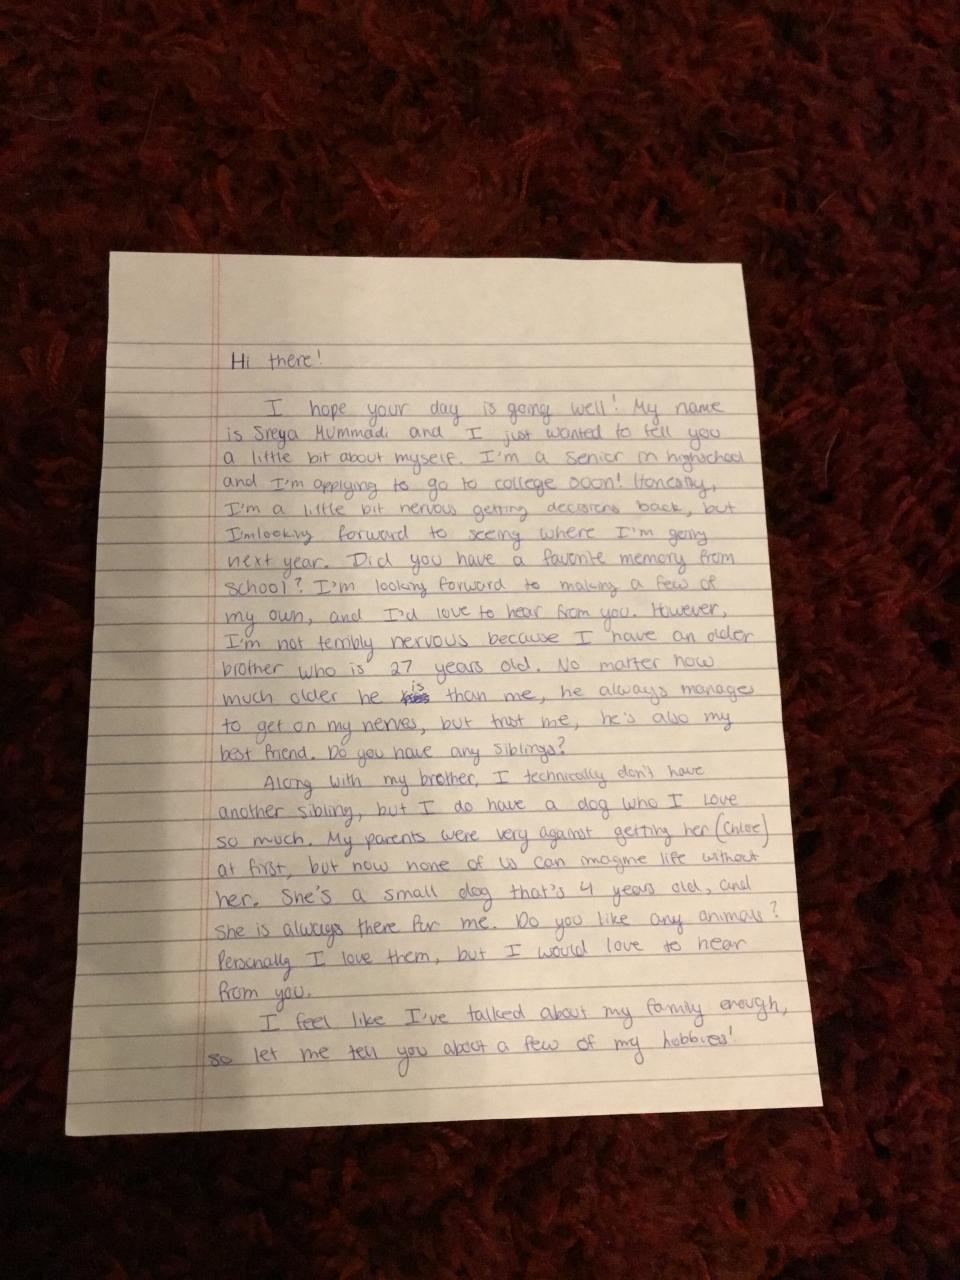 Hi there!
I hope your day is going well! My name
is Sreya Mummadi and I just wanted to tell you
a little bit about myself. I'm a senior in highschool
and I'm applying to go to college soon! Honestly,
I'm a little bit nervous getting decisions back, but
I'm looking forward to seeing where I'm going
next year. Did you have a favorite memory from
school? I'm looking forward to making a few of
my own, and I'd love to hear from you. However,
I'm not terribly nervous because I have an older
brother who is 27 years old. No matter how
much older he is than me, he always manages
to get on my nerves, but trust me, he's also my
best friend. Do you have any siblings?
Along with my brother, I technically don't have
another sibling, but I do have a dog who I love
so much. My parents were very against getting her (Chloe)
at first, but now none of us can imagine life without
her. She's a small dog that's 4 years old, and
she is always there for me. Do you like any animals?
Personally I love them, but I would love to hear
from you.
I feel like I've talked about my family enough,
so let me tell you about a few of my hobbies!